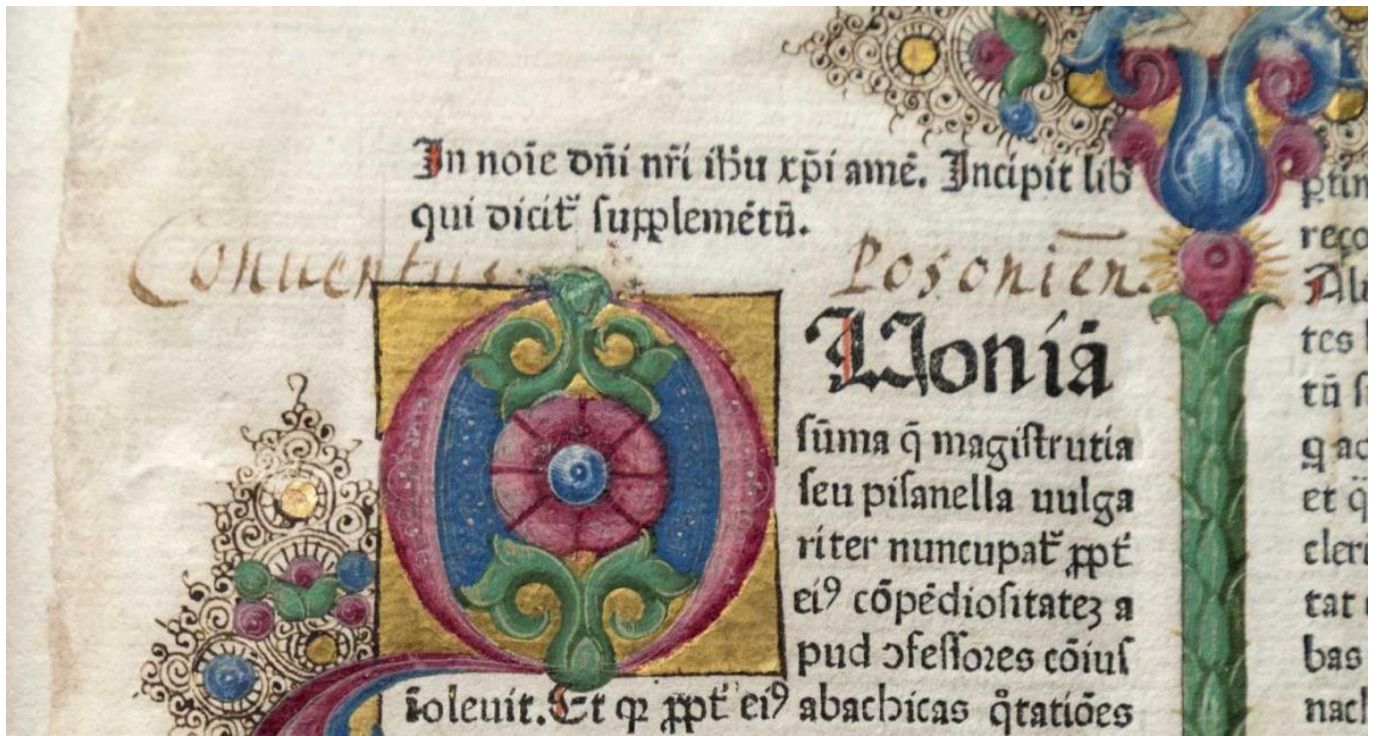 In noīe dñi nr̄i ih̄u xp̄i amē. Incipit lib̃
qui dicit᷑ supplemētū.
Conuentus Posonien̄.
QUoniā
sūma q̄ magistrutia
seu pisanella uulga
riter nuncupat᷑ ꝓpt᷑
eiꝰ cōpēdiositateꝫ a
pud ↄfessores cōius
īoleuit. Et qꝛ ꝓpt᷑ eiꝰ abachicas q̊tatiōes
reço
tes
tū
et q̄
cleri
tat
bas
nach